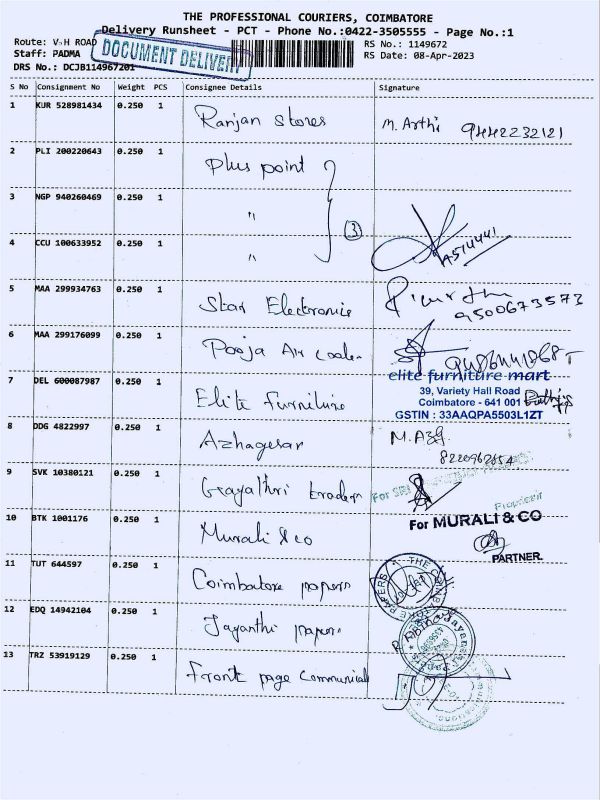 THE PROFESSIONAL COURIERS, COIMBATORE
Delivery Runsheet - PCT - Phone No.:0422-3505555 - Page No.:1
Route: V-H ROAD
Staff: PADMA
DRS No.: DCJB114967201
DOCUMENT DELIVERY
RS No.: 1149672
RS Date: 08-Apr-2023
S No Consignment No Weight PCS Consignee Details Signature
1 KUR 528981434 0.250 1 Ranjan Stores M. Arthi 9442232121
2 PLI 200220643 0.250 1 Plus point
3 NGP 940260469 0.250 1 "
4 CCU 100633952 0.250 1 "
3
5 MAA 299934763 0.250 1 Star Electronics 9500673573
6 MAA 299176099 0.250 1 Pooja Air cooler
7 DEL 600087987 0.250 1 Elite furniture
elite furniture mart
39, Variety Hall Road
Coimbatore - 641 001
GSTIN : 33AAQPA5503L1ZT
8 DDG 4822997 0.250 1 Azhagesar
9 SVK 10380121 0.250 1 Gayathri traders
For SRI
Proprietor
10 BTK 1001176 0.250 1 Murali & co
For MURALI & CO
PARTNER.
11 TUT 644597 0.250 1 Coimbatore papers
12 EDQ 14942104 0.250 1 Jayanthi papers
13 TRZ 53919129 0.250 1 Front page Communicat